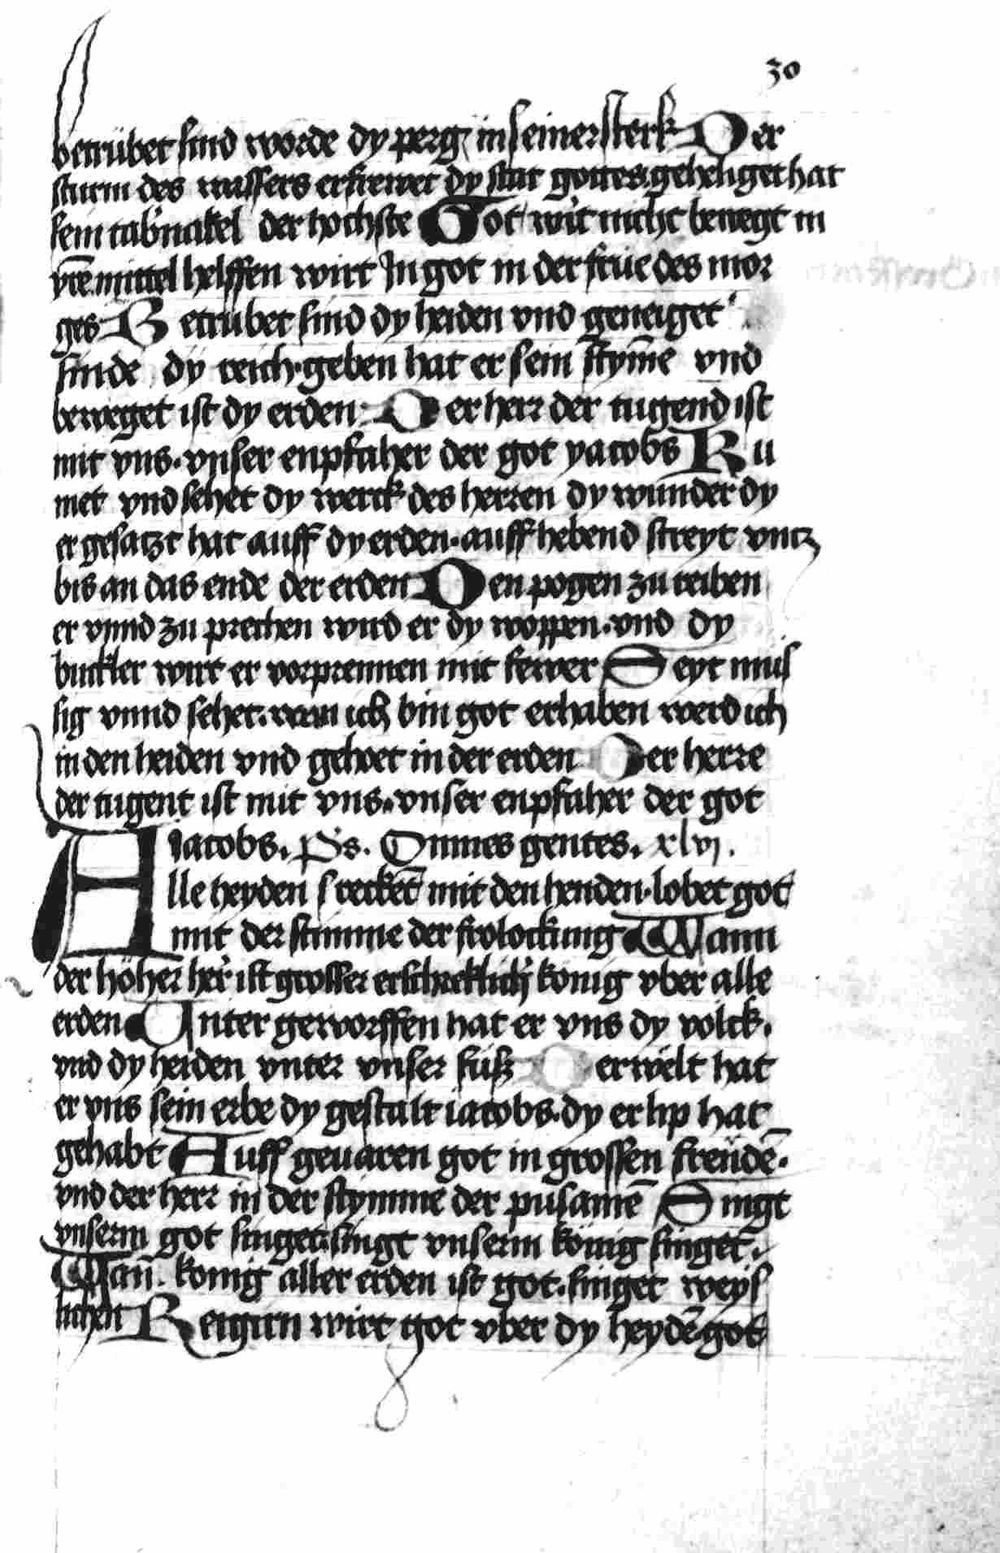 30
betrübet sind worde dy perg in seiner sterk Der
sturm des wassers erfrewet dy stat gottes geheiliget hat
sein tab'nakel der hochste Got wirt nicht bewegt in
yrē mittel helffen wirt In got in der früe des mor
ges Betrubet sind dy heiden vnd geneiget
sinde dy reich· geben hat er sein styme vnd
beweget ist dy erden Der herr der tugend ist
mit vns· vnser enpfaher der got yacobs Ku
met vnd sehet dy werck des herren dy wunder dy
er gesatzt hat auff dy erden· auffhebend streyt vntz
bis an das ende der erden Den pogen zu reiben
er vnnd zu prechen wird er dy woppen· vnd dy
buckler wirt er vorprennen mit fewer Seyt mus
sig vnnd sehet· wann ich bin got erhaben werd ich
in den heiden vnd gehoet in der erden Der herre
der tugent ist mit vns· vnser enpfaher der got
Iacobs. Ps. Omnes gentes. xlvj.
Alle heyden sreckēt mit den henden· lobet got
mit der stimme der frolockung Wann
der höher her' ist grosser erschrecklich' konig vber alle
erden Unter geworffen hat er vns dy volck.
vnd dy heiden vnter vnser füsz Derwelt hat
er vns sein erbe dy gestalt iacobs· dy er lip hat
gehabt Auff geuaren got in grossen freüdē.
vnd der herr in der stymme der pusamē Singt
vnserm got singet· singt vnserm konig singet.
Wañ. konig aller erden ist got· singet weys
lichen Reigirn wirt got vber dy heydē got